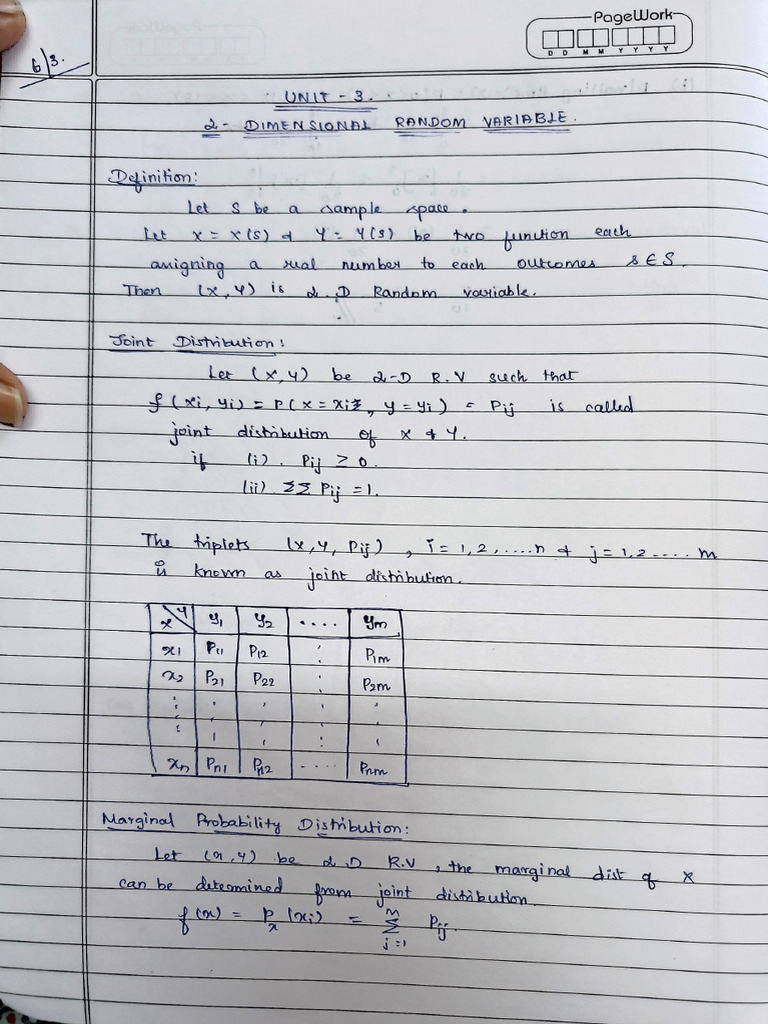 PageWork
D D M M Y Y Y Y
6/3.
UNIT - 3.
2 - DIMENSIONAL RANDOM VARIABLE.
Definition:
Let S be a sample space.
Let X = X(S) & Y = Y(S) be two function each
assigning a real number to each outcomes s ∈ S.
Then (X, Y) is 2 D Random variable.
Joint Distribution:
Let (X, Y) be 2-D R.V such that
f(xi, yi) = P(X = xi, Y = yi) = Pij is called
joint distribution of X & Y.
if (i). Pij ≥ 0.
(ii). ΣΣ Pij = 1.
The triplets (X, Y, Pij), i = 1, 2, ..... n & j = 1, 2 ..... m
is known as joint distribution.
X Y y1 y2 .... ym
x1 P11 P12 : P1m
x2 P21 P22 : P2m
xn Pn1 Pn2 .... Pnm
Marginal Probability Distribution:
Let (x, y) be 2 D R.V, the marginal dist of X
can be determined from joint distribution.
f(x) = Px(xi) = Σ_{j=1}^{m} Pij.